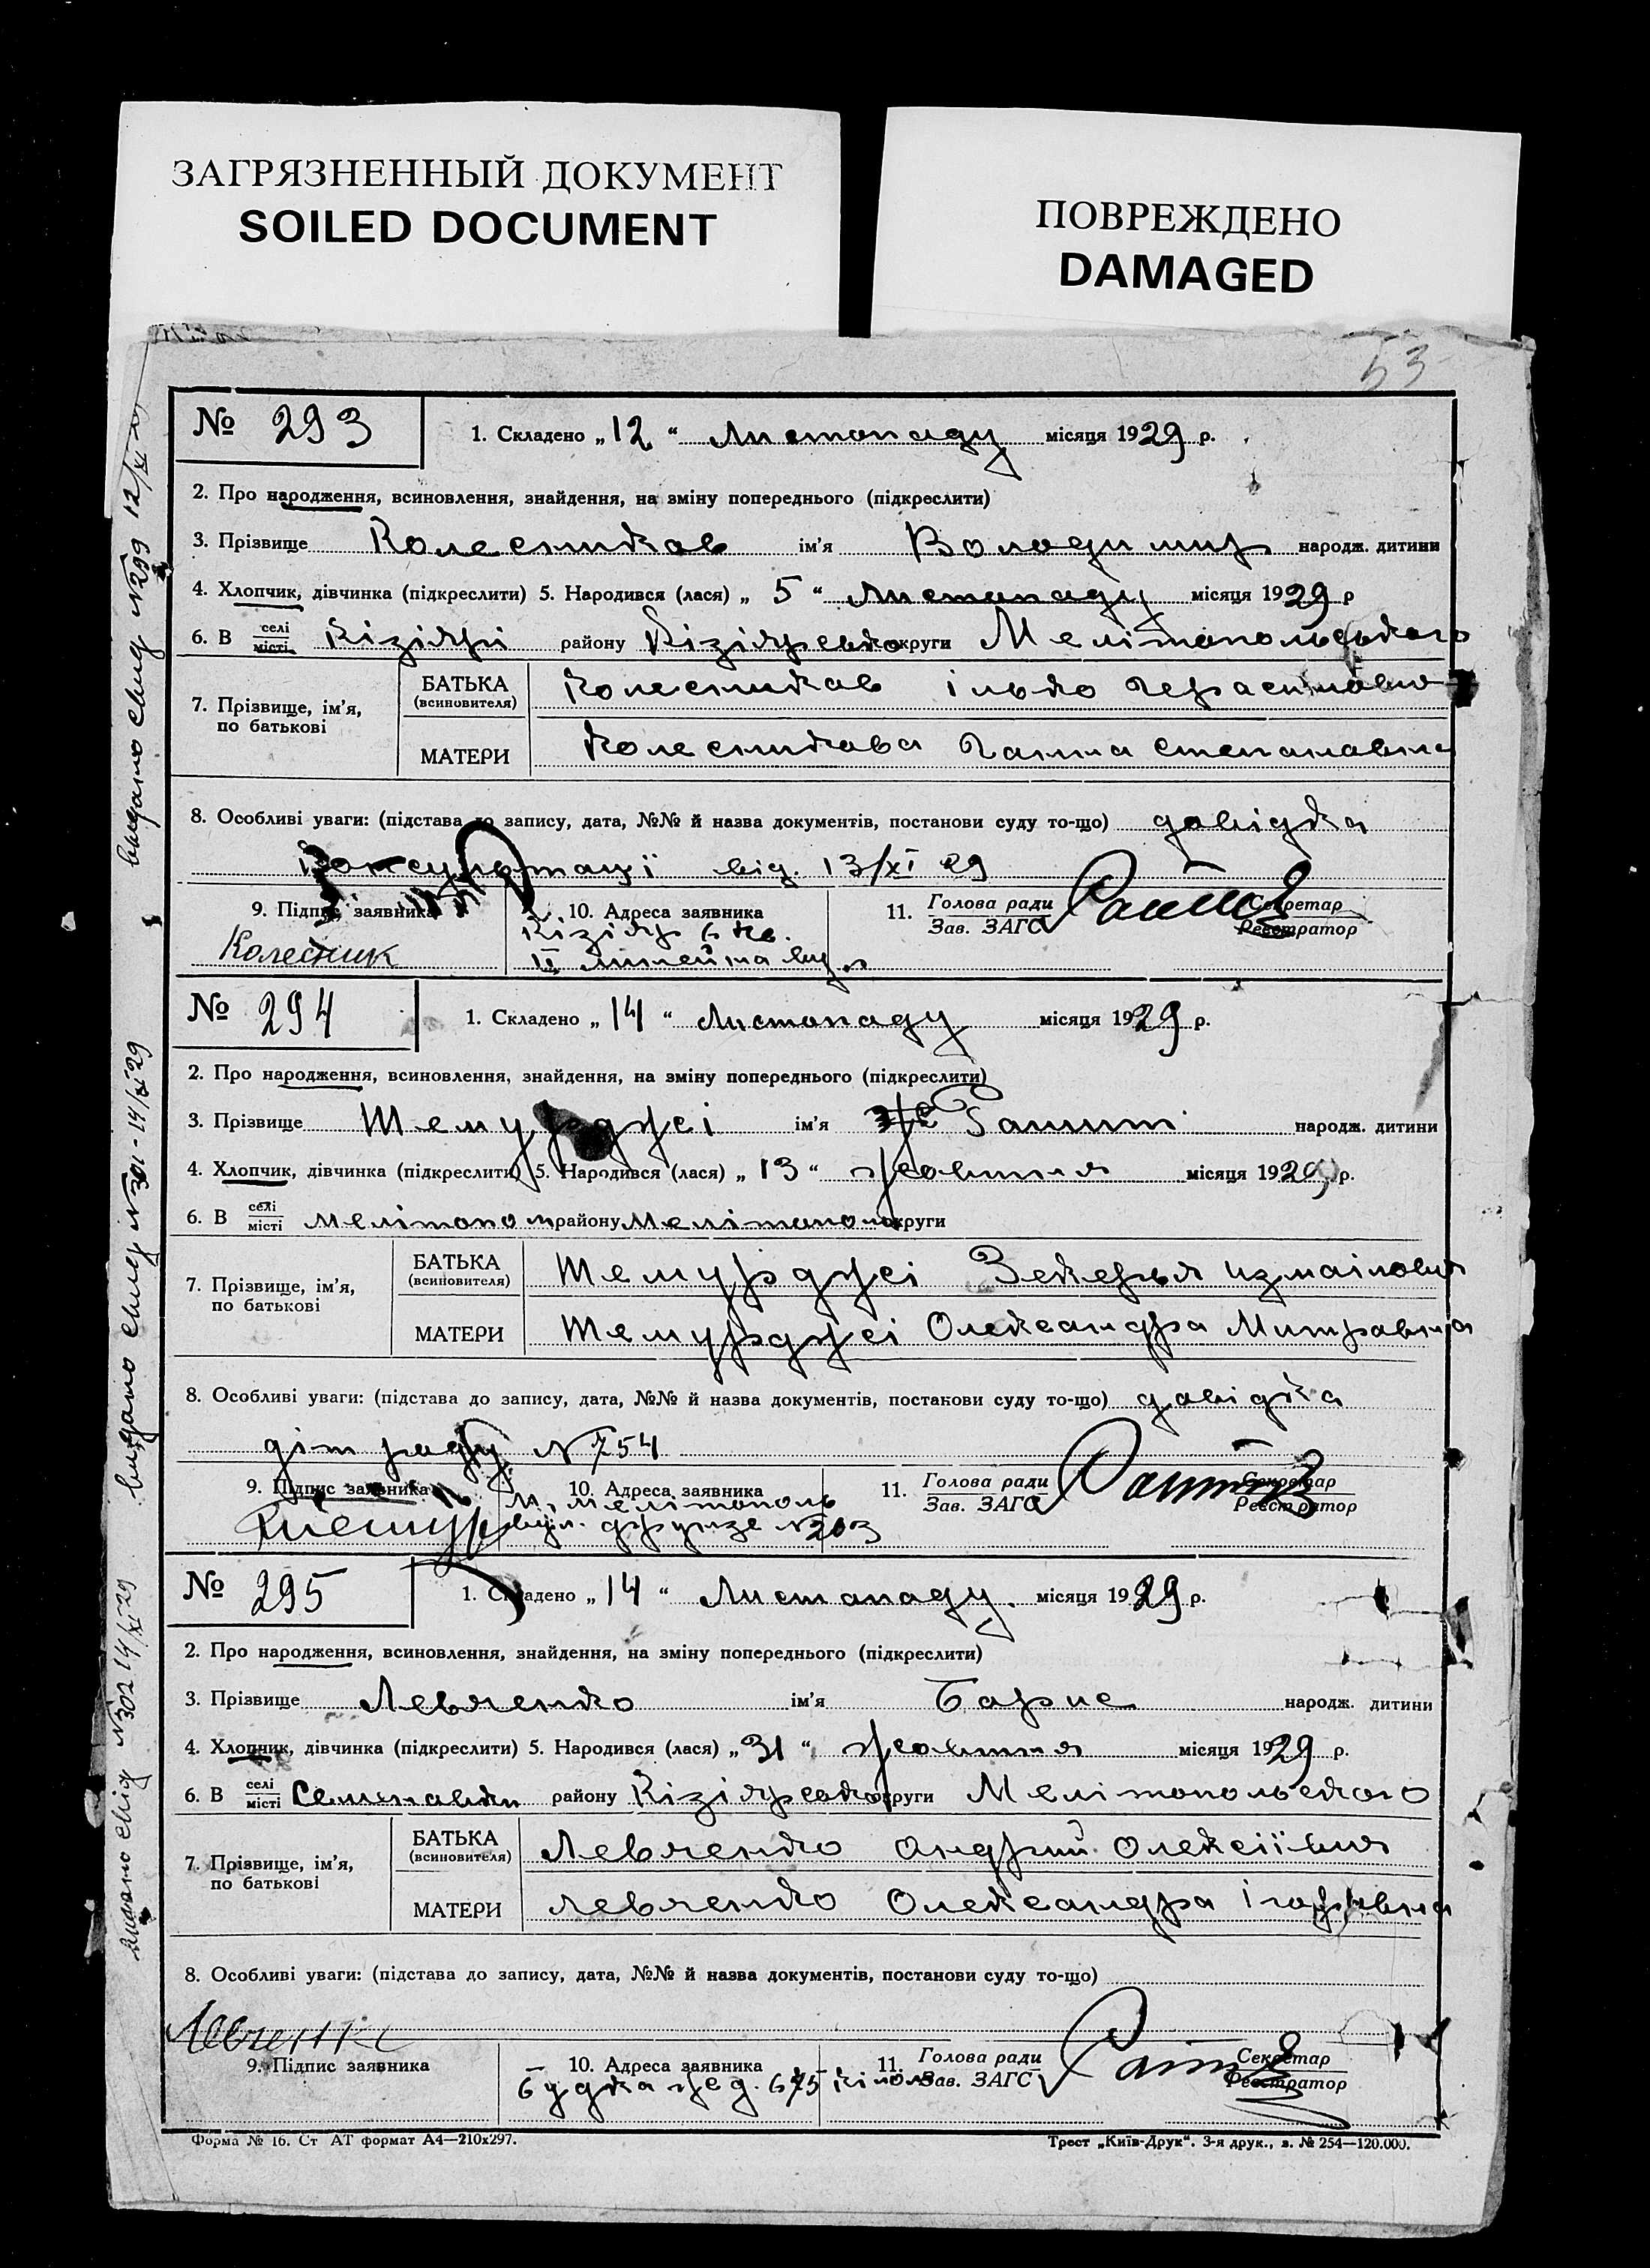 ЗАГРЯЗНЕННЫЙ ДОКУМЕНТ
SOILED DOCUMENT
ПОВРЕЖДЕНО
DAMAGED
53
№ 293
1. Складено „12“ Листопаду місяця 1929 р.
2. Про народження, всиновлення, знайдення, на зміну попереднього (підкреслити)
3. Прізвище Колесников ім'я Володимир народж. дитини
4. Хлопчик, дівчинка (підкреслити) 5. Народився (лася) „5“ Листопаду місяця 1929 р
6. В селі місті Кізіярі району Кізіярсько округи Мелітопольського
7. Прізвище, ім'я, по батькові
БАТЬКА (всиновителя) Колесников Ілько Герасимович
МАТЕРИ Колесникова Ганна Степановна
8. Особливі уваги: (підстава до запису, дата, №№ й назва документів, постанови суду то-що) довідка
консультації від. 13/XI 29
9. Підпис заявника
10. Адреса заявника
11. Голова ради Зав. ЗАГС
Секретар Реєстратор
Колесник
Кізіяр 6 кв.
II линейна вул
видано свид №299 12/XI 29
№ 294
1. Складено „14“ Листопаду місяця 1929 р.
2. Про народження, всиновлення, знайдення, на зміну попереднього (підкреслити)
3. Прізвище Темурджеі ім'я народж. дитини
4. Хлопчик, дівчинка (підкреслити) 5. Народився (лася) „13“ жовтня місяця 1929 р.
6. В селі місті Мелітополі району Мелітополь округи
7. Прізвище, ім'я, по батькові
БАТЬКА (всиновителя) Темурджеі Зекерья Измаілович
МАТЕРИ Темурджеі Олександра Митравна
8. Особливі уваги: (підстава до запису, дата, №№ й назва документів, постакови суду то-що) довідка
№ 754
9. Підпис заявника
10. Адреса заявника
11. Голова ради Зав. ЗАГС
Секретар Реєстратор
м. Мелітополь
вул. Фрунзе №203
видано свид №301 - 14/XI 29
№ 295
1. Складено „14“ Листопаду місяця 1929 р.
2. Про народження, всиновлення, знайдення, на зміну попереднього (підкреслити)
3. Прізвище Левченко ім'я Барис народж. дитини
4. Хлопчик, дівчинка (підкреслити) 5. Народився (лася) „31“ жовтня місяця 1929 р.
6. В селі місті району Кізіярсько округи Мелітопольского
7. Прізвище, ім'я, по батькові
БАТЬКА (всиновителя) Левченко Андрий Олексіївич
МАТЕРИ Левченко Олександра Ігорівна
8. Особливі уваги: (підстава до запису, дата, №№ й назва документів, постанови суду то-що)
Левченко
9. Підпис заявника
10. Адреса заявника
11. Голова ради Зав. ЗАГС
Секретар Реєстратор
будка
видано свид №302 14/XI 29
Форма № 16. Ст АТ формат А4—210x297.
Трест „Київ-Друк“. 3-я друк., з. № 254—120.000.